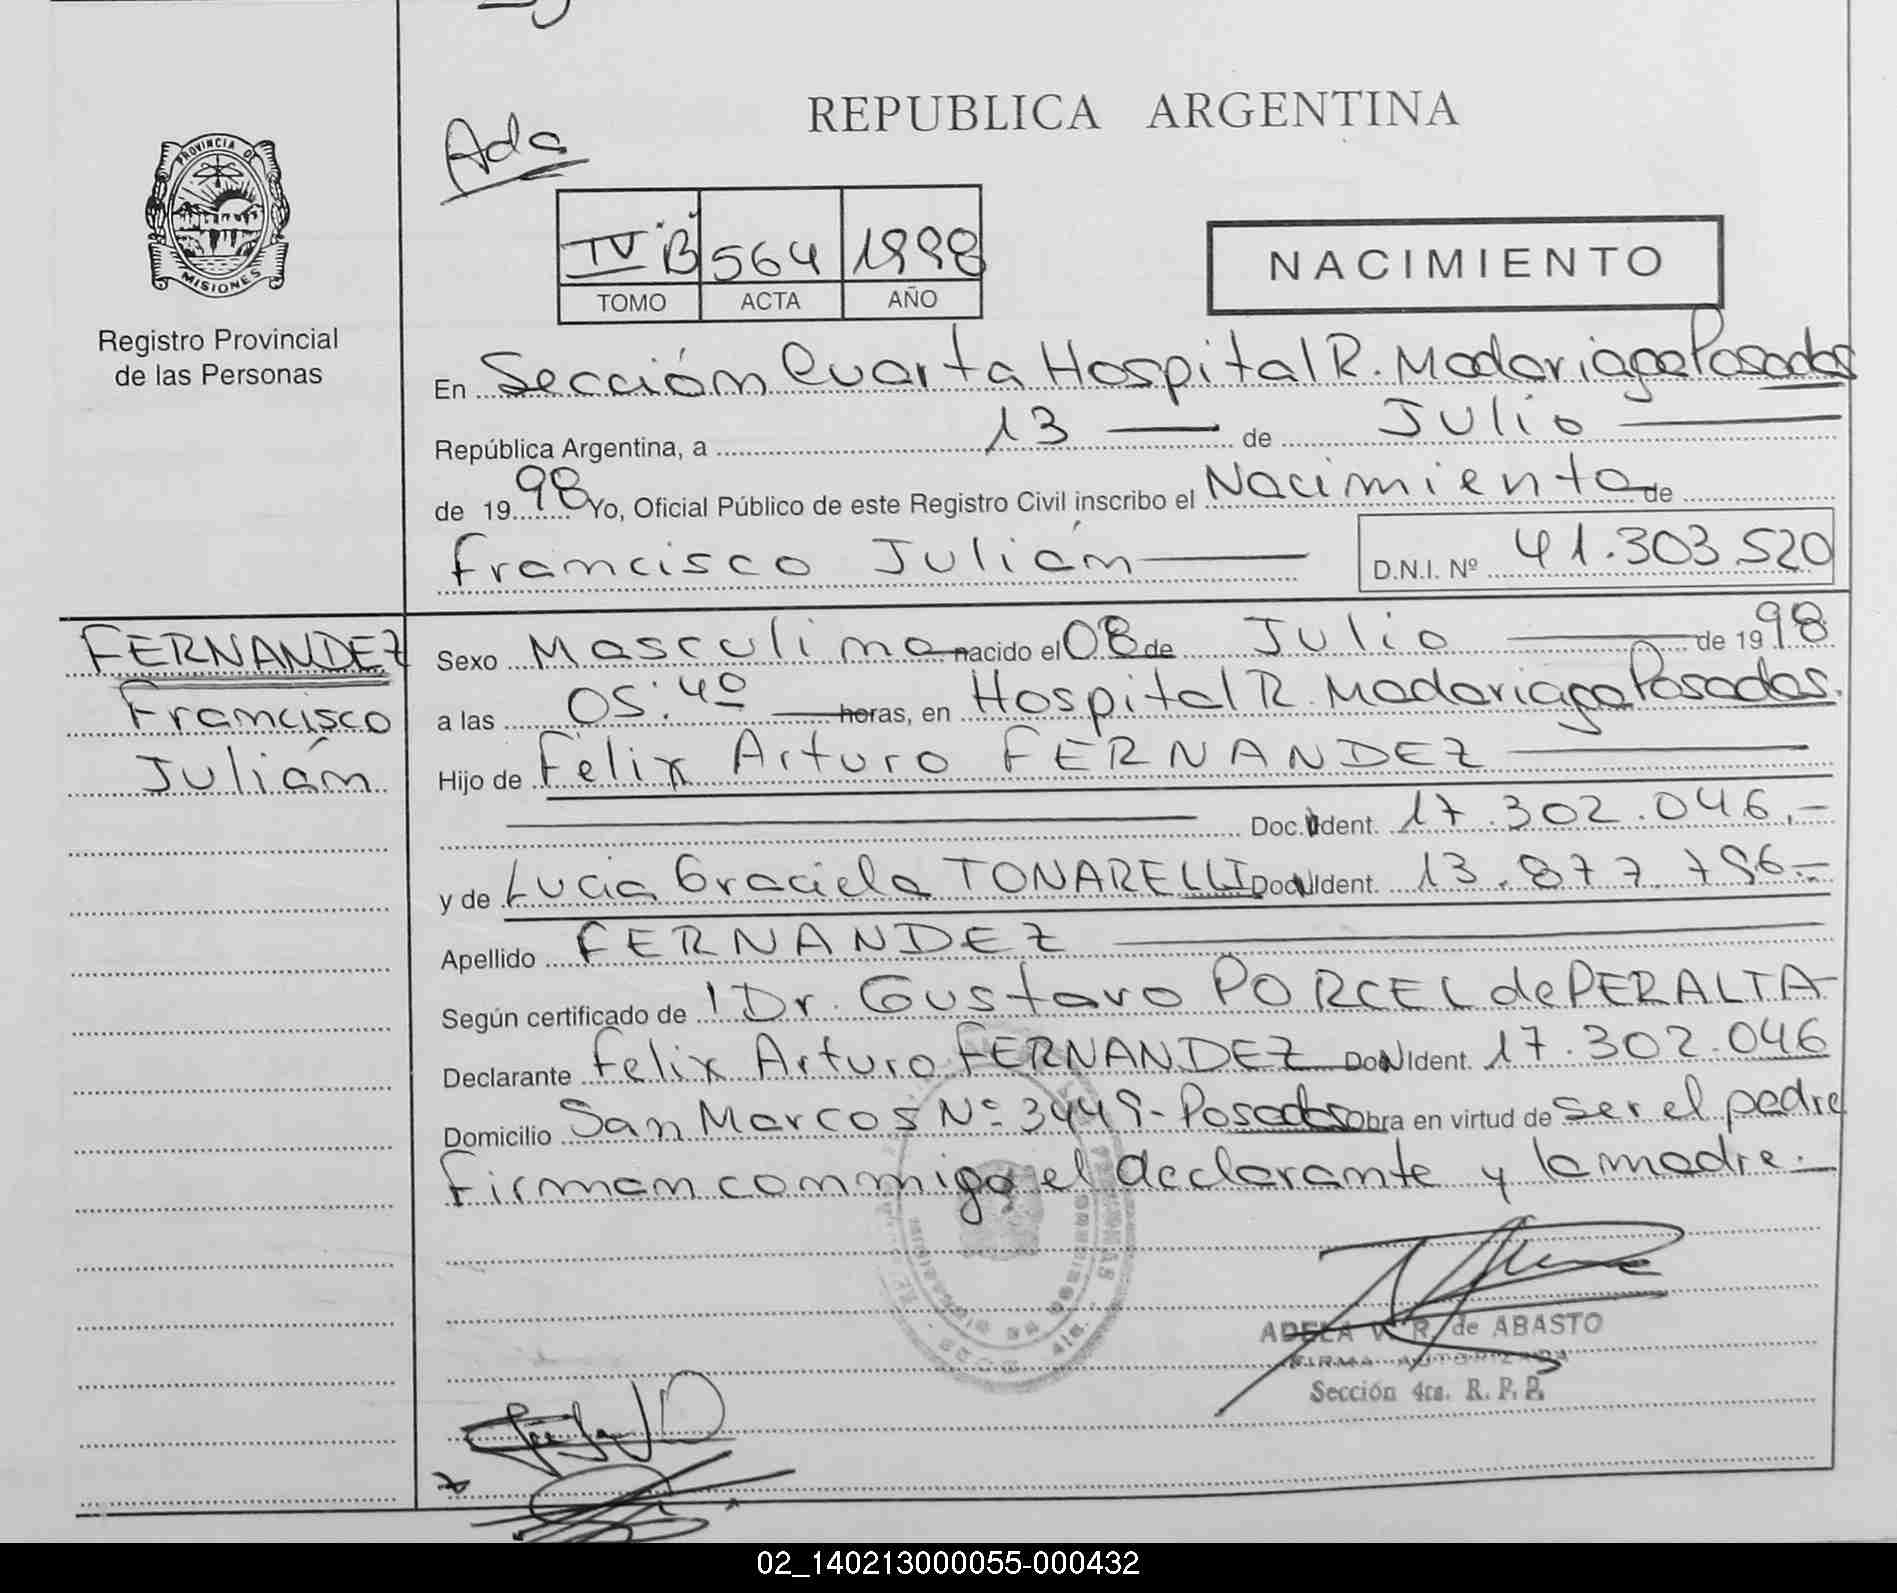 REPUBLICA ARGENTINA
Ada
IV "B" 564 1998
TOMO ACTA AÑO
NACIMIENTO
PROVINCIA DE
MISIONES
Registro Provincial
de las Personas
En Sección Cuarta Hospital R. Madariaga Posadas
República Argentina, a 13 de Julio
de 1998 Yo, Oficial Público de este Registro Civil inscribo el Nacimiento de
Francisco Julián D.N.I. Nº 41.303.520
FERNANDEZ
Francisco
Julián
Sexo Masculino nacido el 08 de Julio de 1998
a las 05:40 horas, en Hospital R. Madariaga Posadas.
Hijo de Felix Arturo FERNANDEZ
Doc. Ident. 17.302.046.-
y de Lucia Graciela TONARELLI Doc. Ident. 13.877.796.-
Apellido FERNANDEZ
Según certificado de l Dr. Gustavo PORCEL de PERALTA
Declarante Felix Arturo FERNANDEZ Doc. Ident. 17.302.046
Domicilio San Marcos Nº 3449 - Posadas Obra en virtud de ser el padre
Firman conmigo el declarante y la madre.
ADELA V. R. de ABASTO
FIRMA AUTORIZADA
Sección 4ta. R. P. P.
02_140213000055-000432